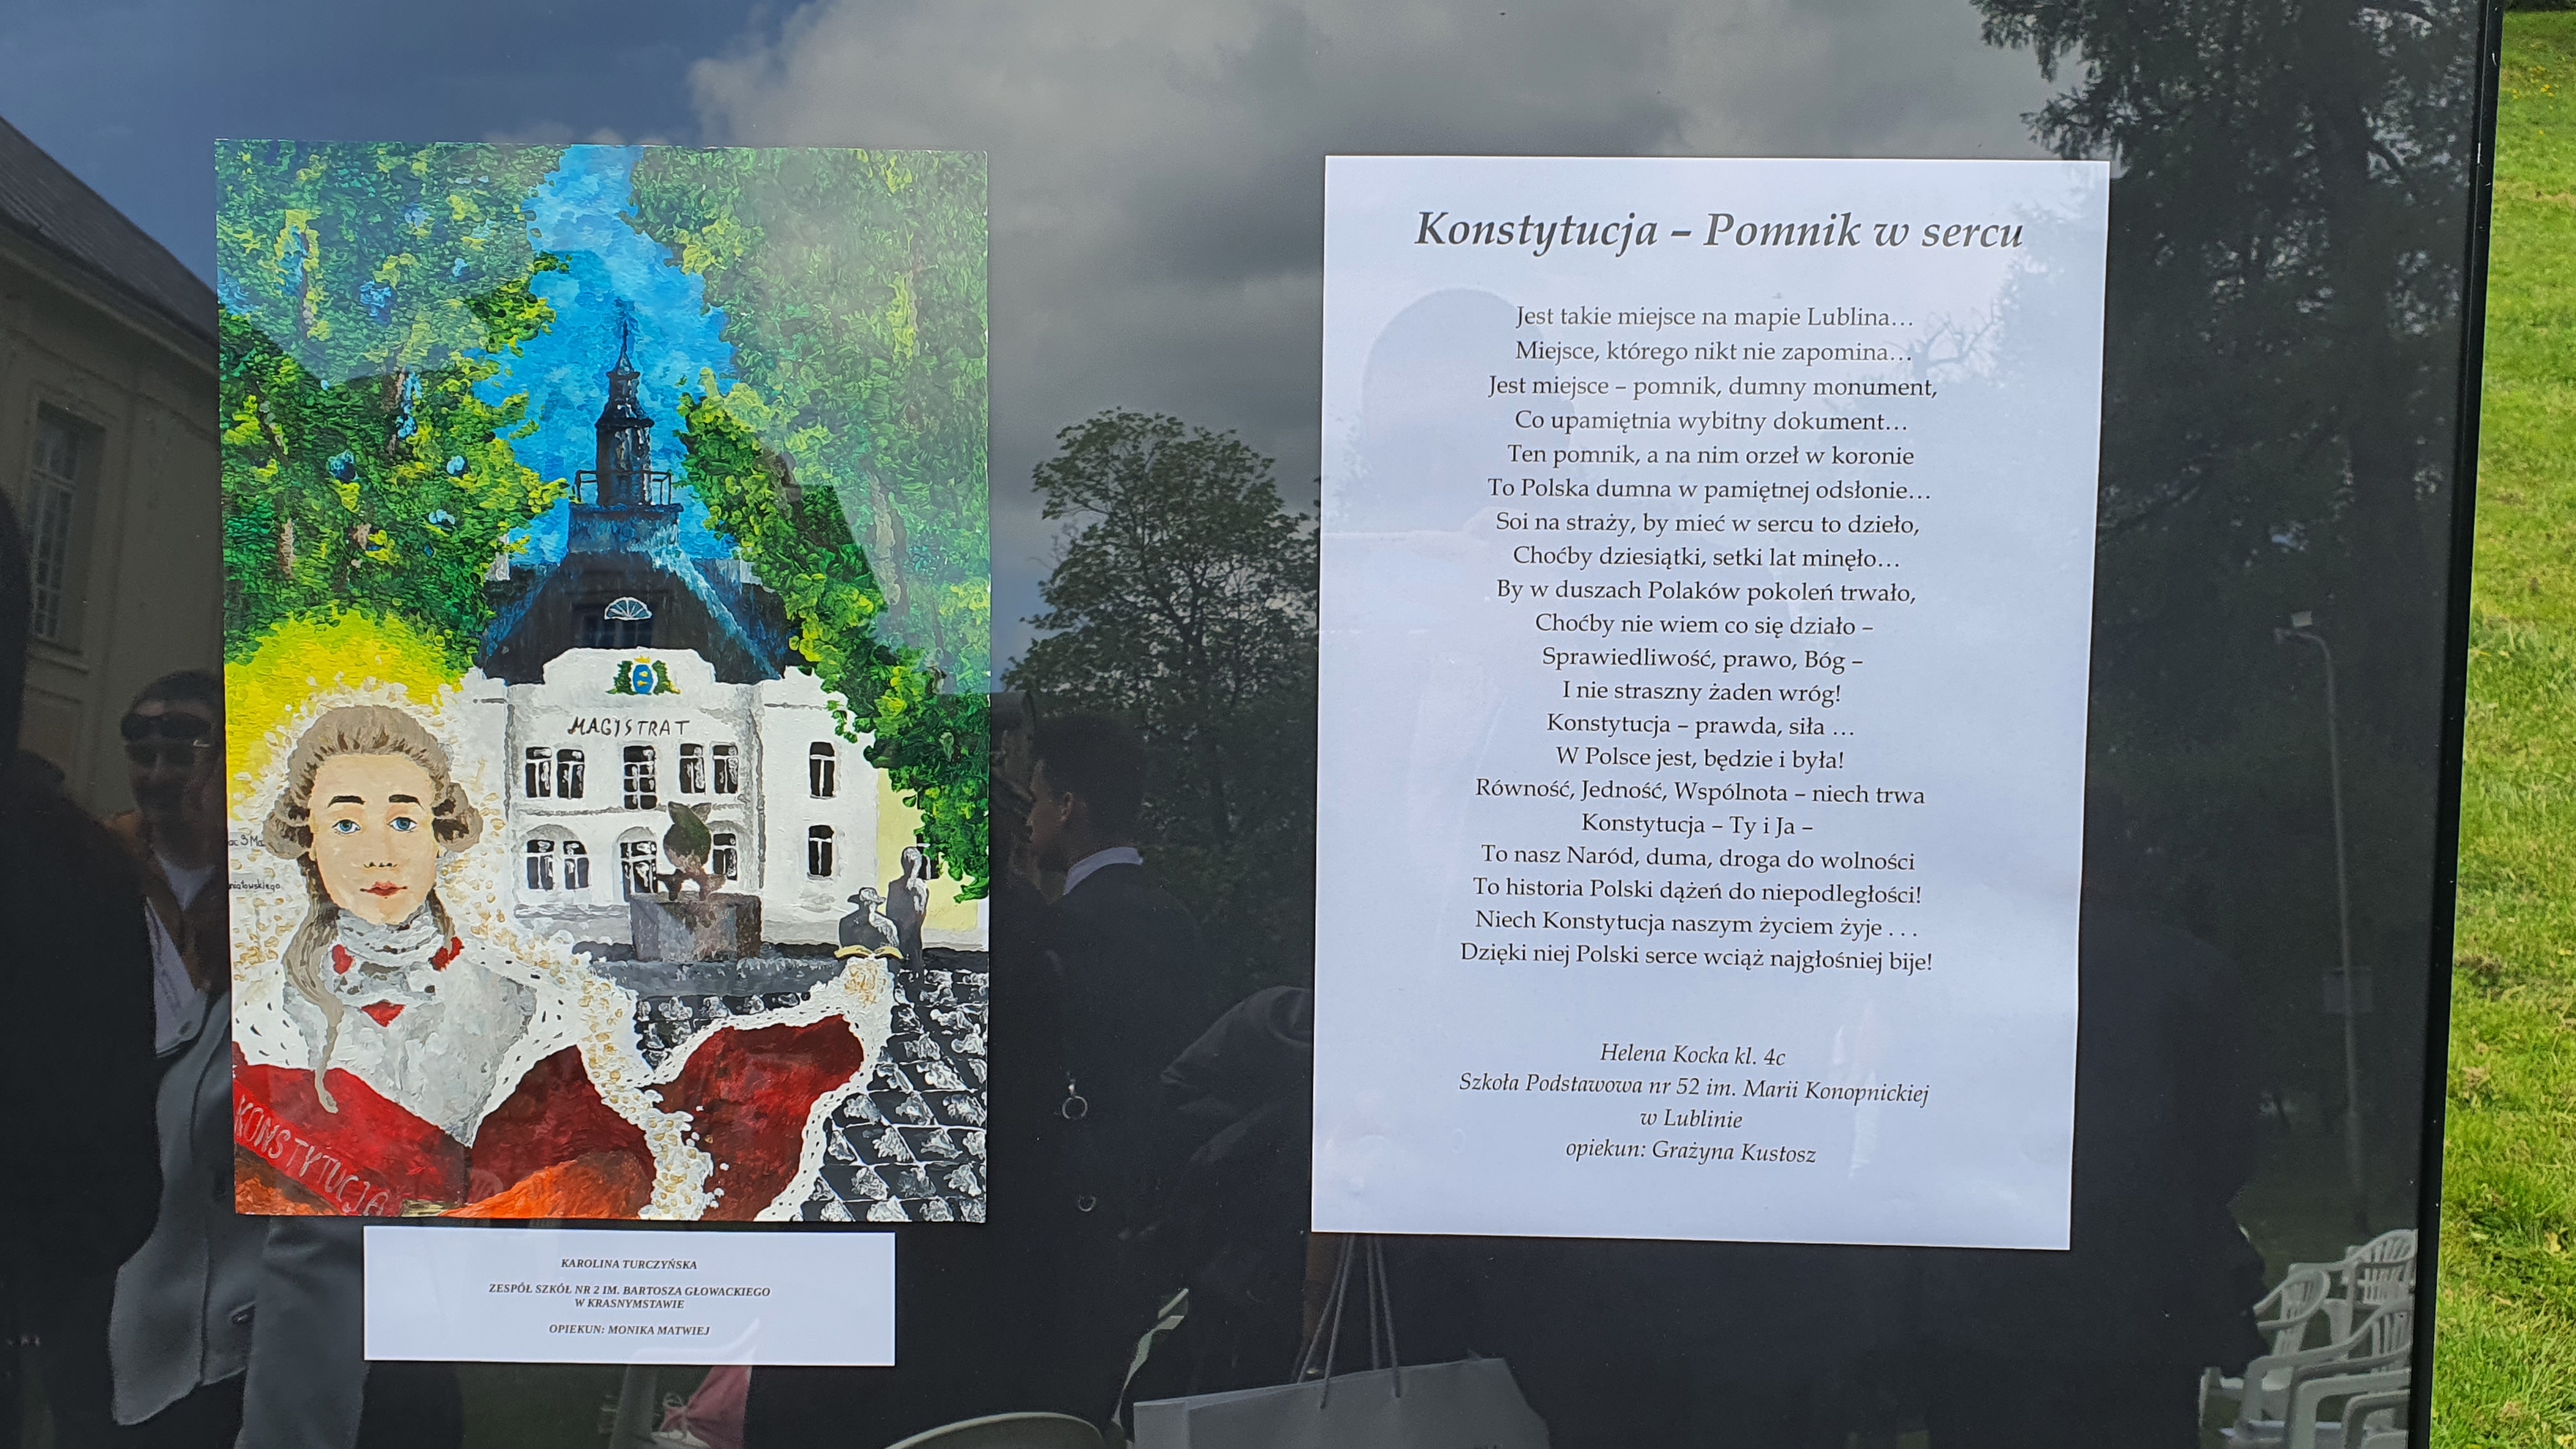 MAGISTRAT
3 Ma
niatowskiego
KONSTYTUCJA
KAROLINA TURCZYŃSKA
ZESPÓŁ SZKÓŁ NR 2 IM. BARTOSZA GŁOWACKIEGO
W KRASNYMSTAWIE
OPIEKUN: MONIKA MATWIEJ
Konstytucja – Pomnik w sercu
Jest takie miejsce na mapie Lublina…
Miejsce, którego nikt nie zapomina…
Jest miejsce – pomnik, dumny monument,
Co upamiętnia wybitny dokument…
Ten pomnik, a na nim orzeł w koronie
To Polska dumna w pamiętnej odsłonie…
Soi na straży, by mieć w sercu to dzieło,
Choćby dziesiątki, setki lat minęło…
By w duszach Polaków pokoleń trwało,
Choćby nie wiem co się działo –
Sprawiedliwość, prawo, Bóg –
I nie straszny żaden wróg!
Konstytucja – prawda, siła …
W Polsce jest, będzie i była!
Równość, Jedność, Wspólnota – niech trwa
Konstytucja – Ty i Ja –
To nasz Naród, duma, droga do wolności
To historia Polski dążeń do niepodległości!
Niech Konstytucja naszym życiem żyje . . .
Dzięki niej Polski serce wciąż najgłośniej bije!
Helena Kocka kl. 4c
Szkoła Podstawowa nr 52 im. Marii Konopnickiej
w Lublinie
opiekun: Grażyna Kustosz